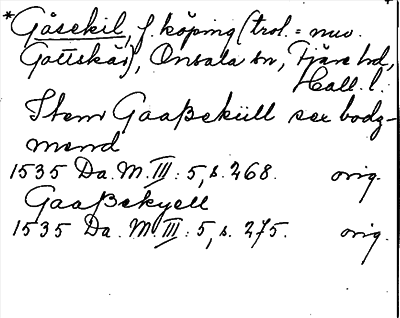 *Gåsekil, f. köping (trol. = nuv.
Gottskär), Onsala sn, Fjäre hd,
Hall. l.
Item Gaaßeküll sex bodz-
mend
1535 Da. M. III: 5, s. 268. orig.
Gaaßekyell
1535 Da. M. III: 5, s. 275. orig.